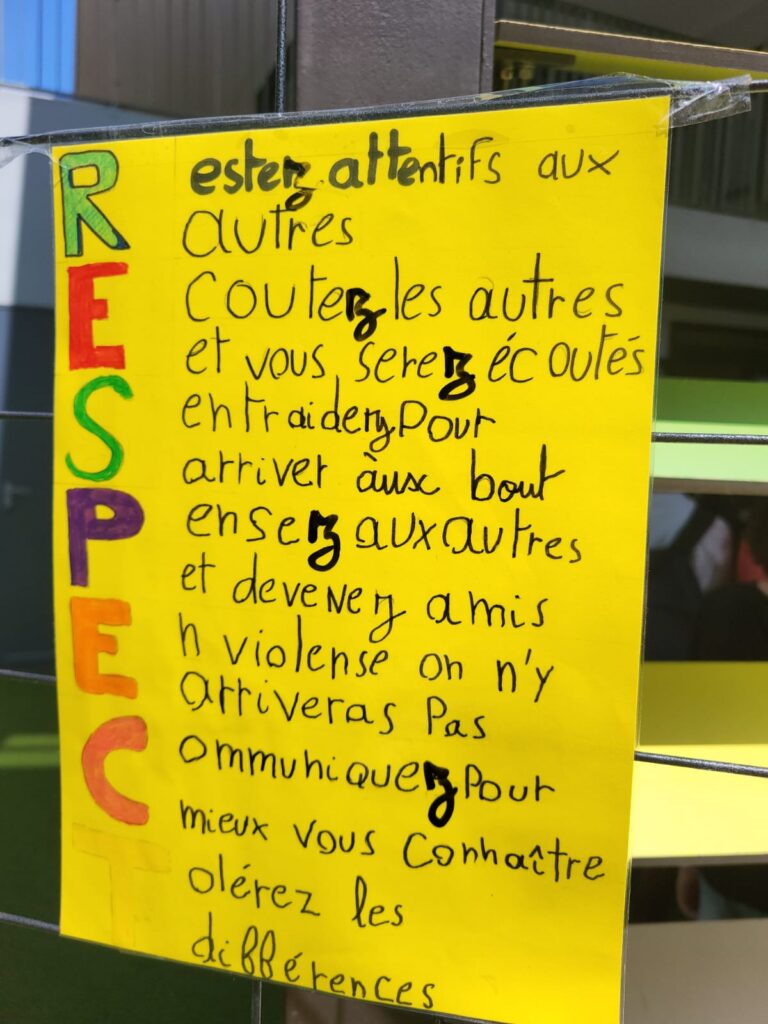 R estez attentifs aux
autres
E coutez les autres
et vous serez écoutés
S entraidez pour
arriver àux bout
P ensez aux autres
et devenez amis
E n violense on n'y
arriveras pas
C ommuniquez pour
mieux vous connaître
T olérez les
différences